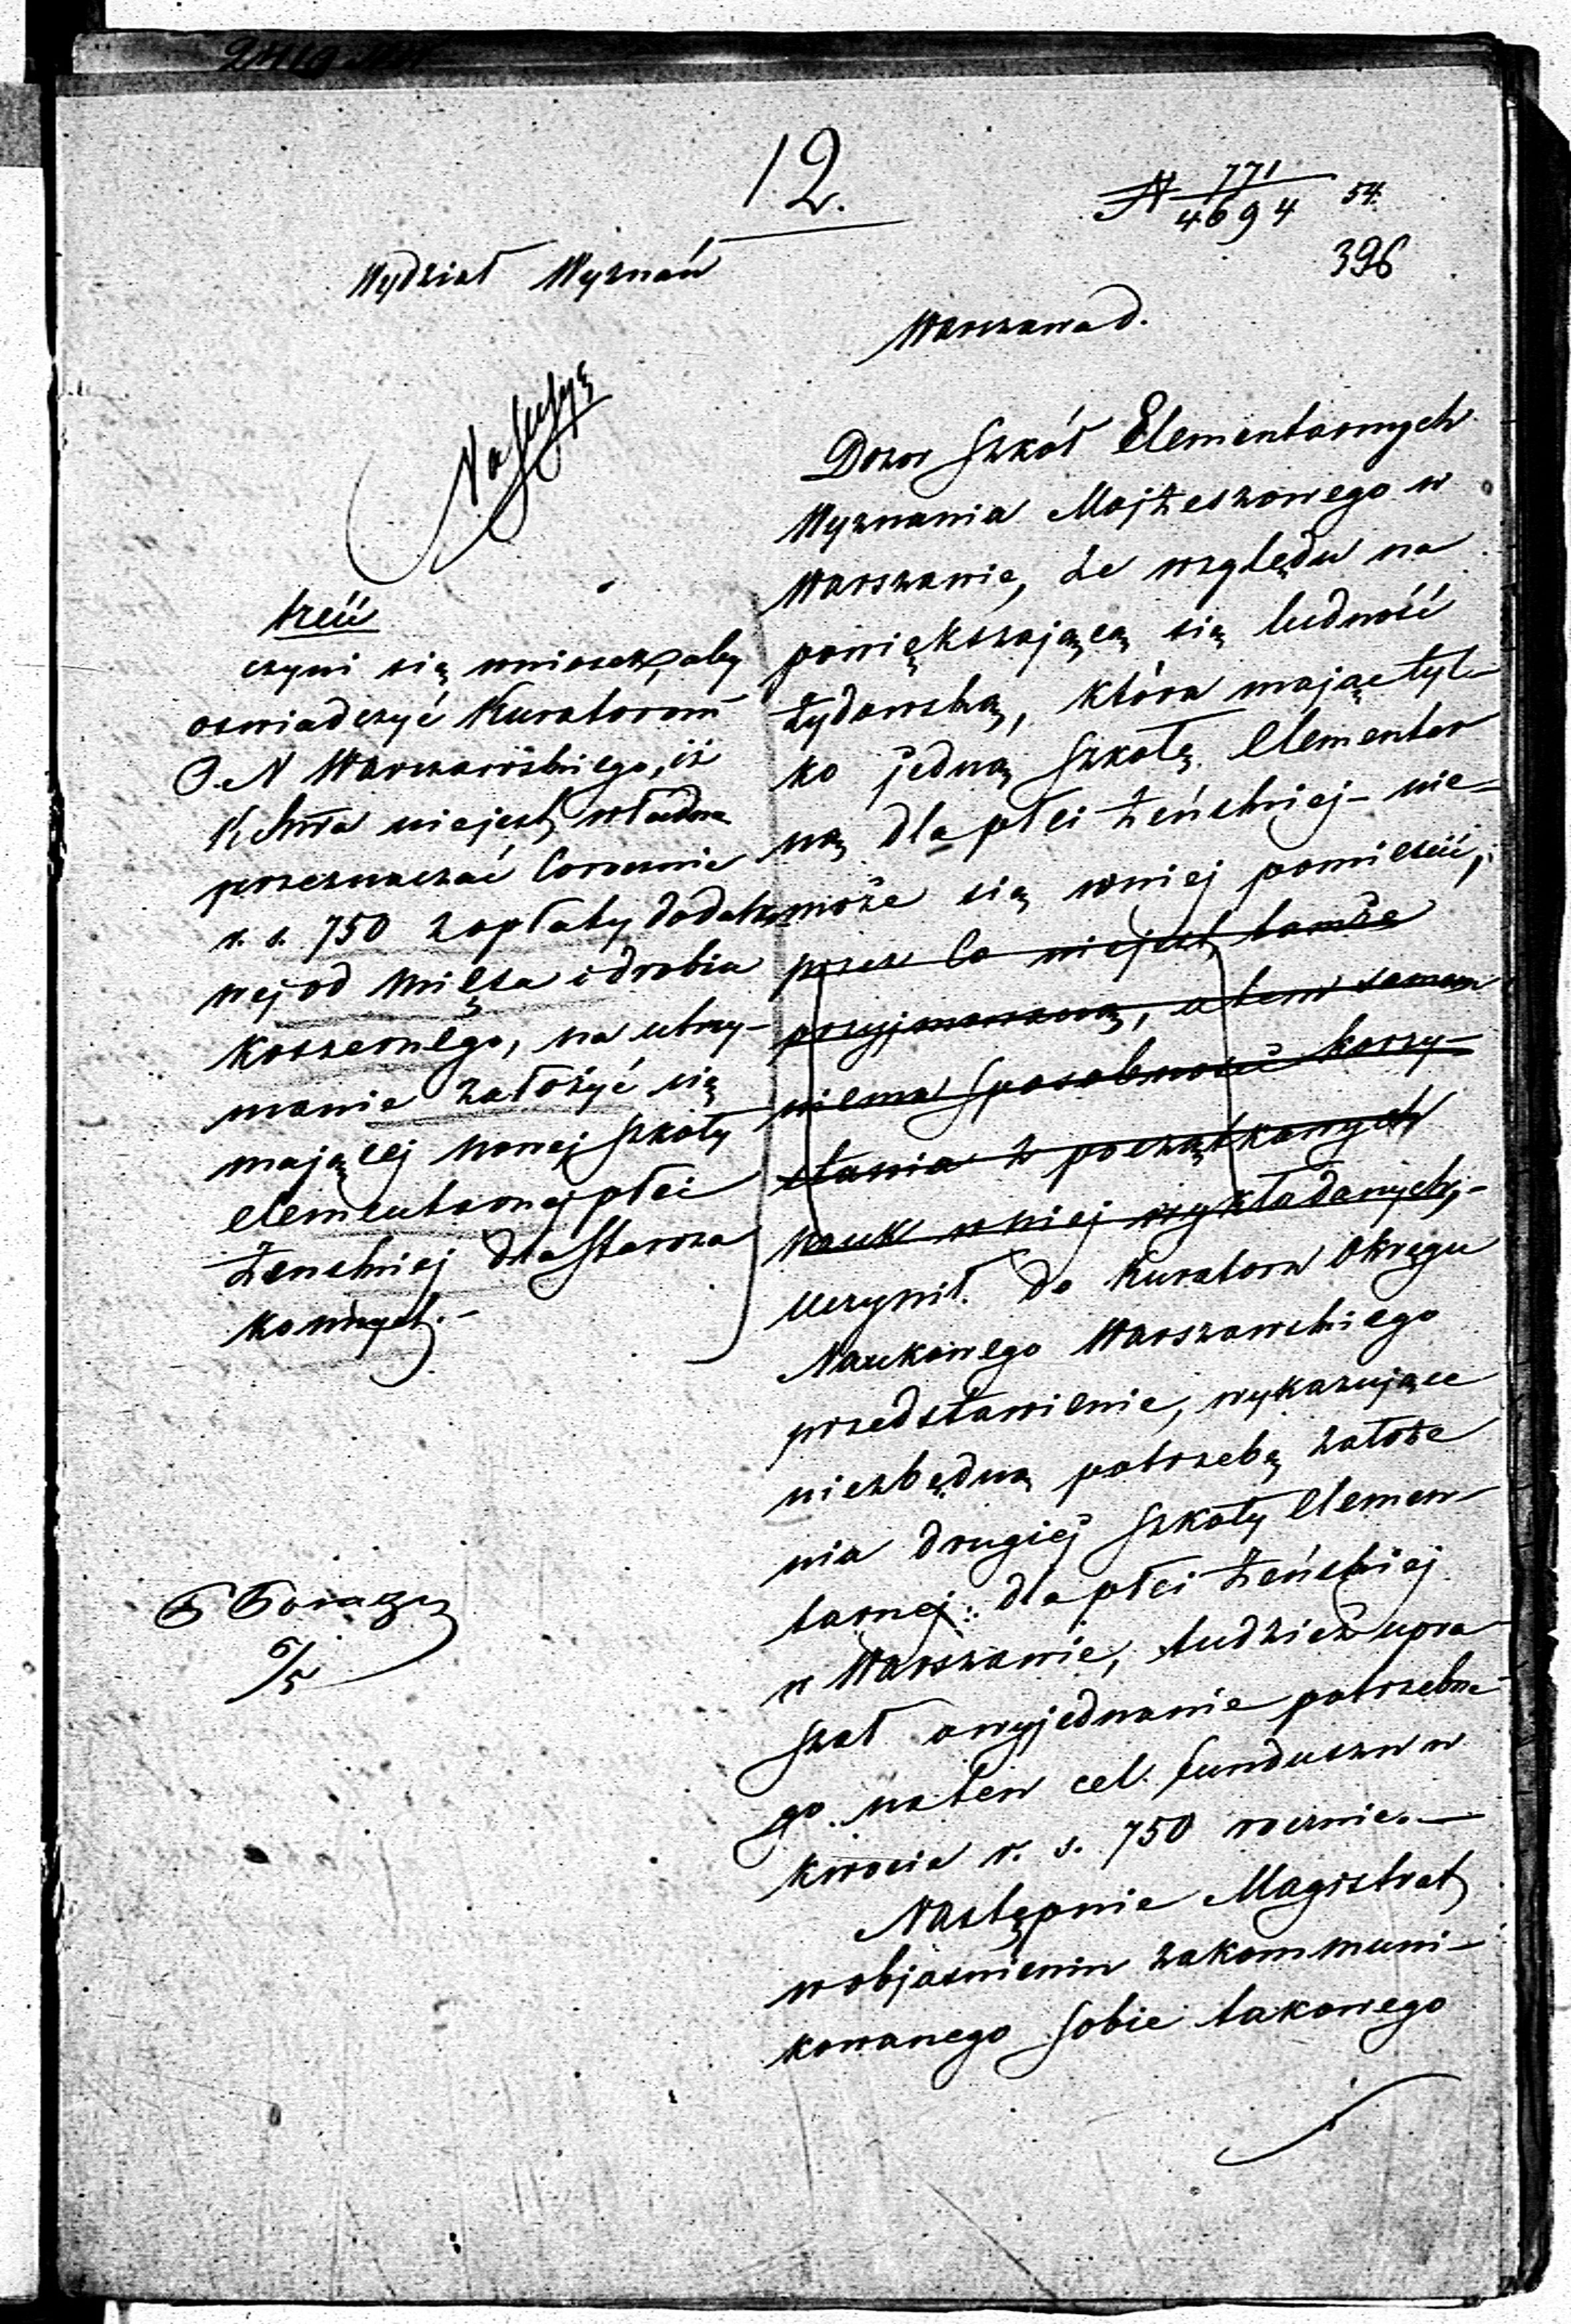 12.
N 771/4694 54.
396
Wydział Wyznań
Warszawa d.
Na Sessyę
treść
czyni się wniosek, aby
oswiadczyć Kuratorowi
O. N Warszawskiego, iż
niejest władna
przeznaczać corocznie
r. s. 750 zopłaty dodatko
wej od mięsa i drobiu
koszernego, na utrzy-
manie założyć się
mającej nowej szkoły
elementarnej płci
żenskiej dla Staroza
konnych.-
6/5
Dozor Szkół Elementarnych
Wyznania Mojżeszowego w
Warszawie, ze względu na
powiększającą się ludność
żydowską, która mając tyl-
ko jedną Szkołę elementar
ną dla płci żeńskiej - nie-
może się wniej pomieścić,
przez co niejest tamże
przyjmowaną, a tem samem
niema sposobności korzy-
stania z początkowych
nauk wniej wykładanych,-
uczynił do Kuratora Okręgu
Naukowego Warszawskiego
przedstawienie, wykazujące
niezbędną potrzebę założe
nia drugiej szkoły elemen-
tarnej dla płci żeńskiej
w Warszawie, tudzież upra
szał owyjednanie potrzebne
go naten cel funduszu w
kwocie r. s. 750 rocznie.-
Następnie Magistrat
wobjasnieniu zakommuni-
kowanego sobie takowego